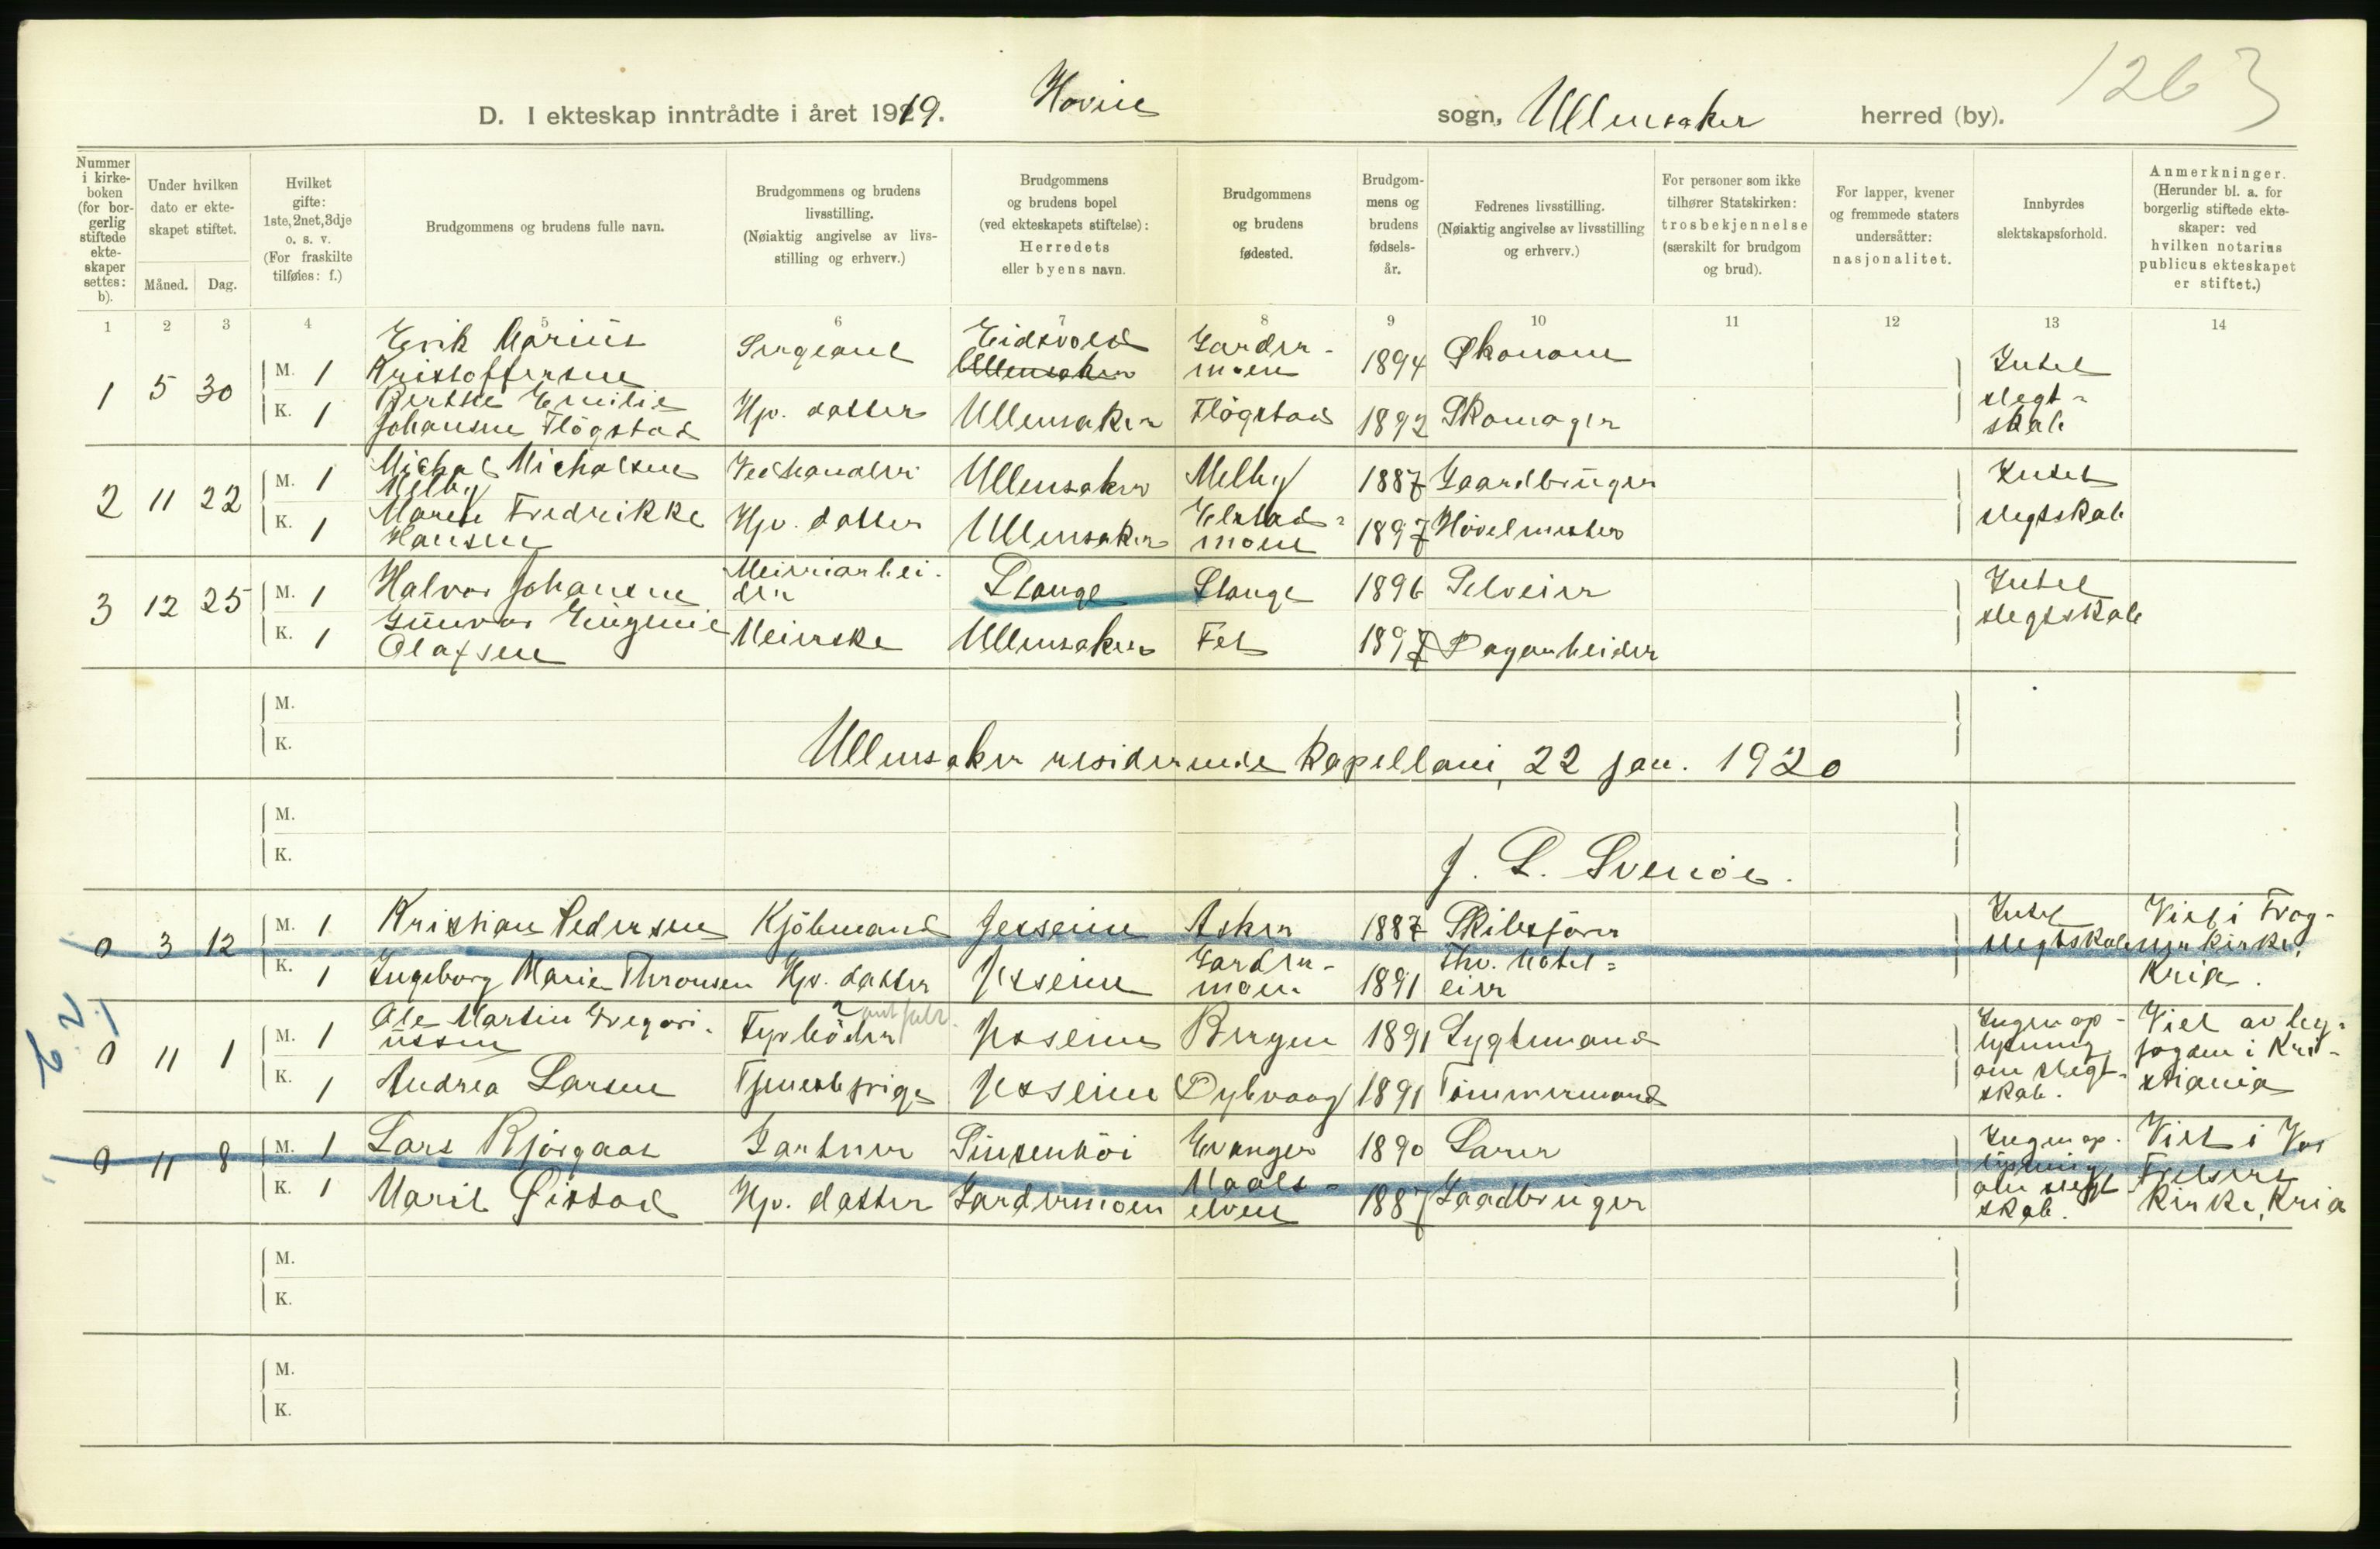 1263
D. I ekteskap inntrådte i året 1919. Hovin sogn, Ullensaker herred (by).
Nummer i kirkeboken (for borgerlig stiftede ekteskaper settes: b).
Under hvilken dato er ekteskapet stiftet.
Måned. Dag.
Hvilket gifte: 1ste, 2net, 3dje o. s. v. (For fraskilte tilføies: f.)
Brudgommens og brudens fulle navn.
Brudgommens og brudens livsstilling. (Nøiaktig angivelse av livsstilling og erhverv.)
Brudgommens og brudens bopel (ved ekteskapets stiftelse): Herredets eller byens navn.
Brudgommens og brudens fødested.
Brudgommens og brudens fødselsår.
Fedrenes livsstilling. (Nøiaktig angivelse av livsstilling og erhverv.)
For personer som ikke tilhører Statskirken: trosbekjennelse (særskilt for brudgom og brud).
For lapper, kvener og fremmede staters undersåtter: nasjonalitet.
Innbyrdes slektskapsforhold.
Anmerkninger. (Herunder bl. a. for borgerlig stiftede ekteskaper: ved hvilken notarius publicus ekteskapet er stiftet.)
1 2 3 4 5 6 7 8 9 10 11 12 13 14
1 5 30 M. 1 Erik Marius Kristoffersen Sergeant Eidsvold Ullensaker Gardermoen 1894 Økonom Intet slegtskab
K. 1 Berthe Emilie Johansen Flögstad Hv. datter Ullensaker Flögstad 1892 Skomager
2 11 22 M. 1 Michal Michalsen Melby Vedhandler Ullensaker Melby 1887 Gaardbruger Intet slegtskab
K. 1 Maren Fredrikke Hansen Hv. datter Ullensaker Elstadmoen 1897 Hövelmester
3 12 25 M. 1 Halvor Johansen Meieriarbeider Stange Stange 1896 Selveier Intet slegtskab
K. 1 Gunvor Eugenie Olafsen Meierske Ullensaker Fet 1897 Dagarbeider
M.
K.
Ullensaker residerende kapellani, 22 jan. 1920
M.
K.
J. L. Svenöe.
0 3 12 M. 1 Kristian Pedersen Kjöbmand Jesseim Asker 1887 Skibsförer Intet slegtskab Viet i Frogner kirke, Kria.
K. 1 Ingeborg Marie Thronsen Hv. datter Jesseim Gardermoen 1891 Fhv. hoteleier
0 11 1 M. 1 Ole Martin Gregoriussen Fyrböder Jesseim Bergen 1891 Lygtemand Ingen oplysning om slegtskab. Viet av byfogden i Kristiania
K. 1 Andrea Larsen Tjenestepige Jesseim Dybvaag 1891 Tömmermand
0 11 8 M. 1 Lars Bjørgaas Gartner Sinsenhöi Evanger 1890 Lærer Ingen oplysning om slegtskab. Viet i Vor Frelsers Kirke, Kria
K. 1 Marit Gistad Hv. datter Gardermoen Maalselven 1887 Gaadbruger
M.
K.
M.
K.